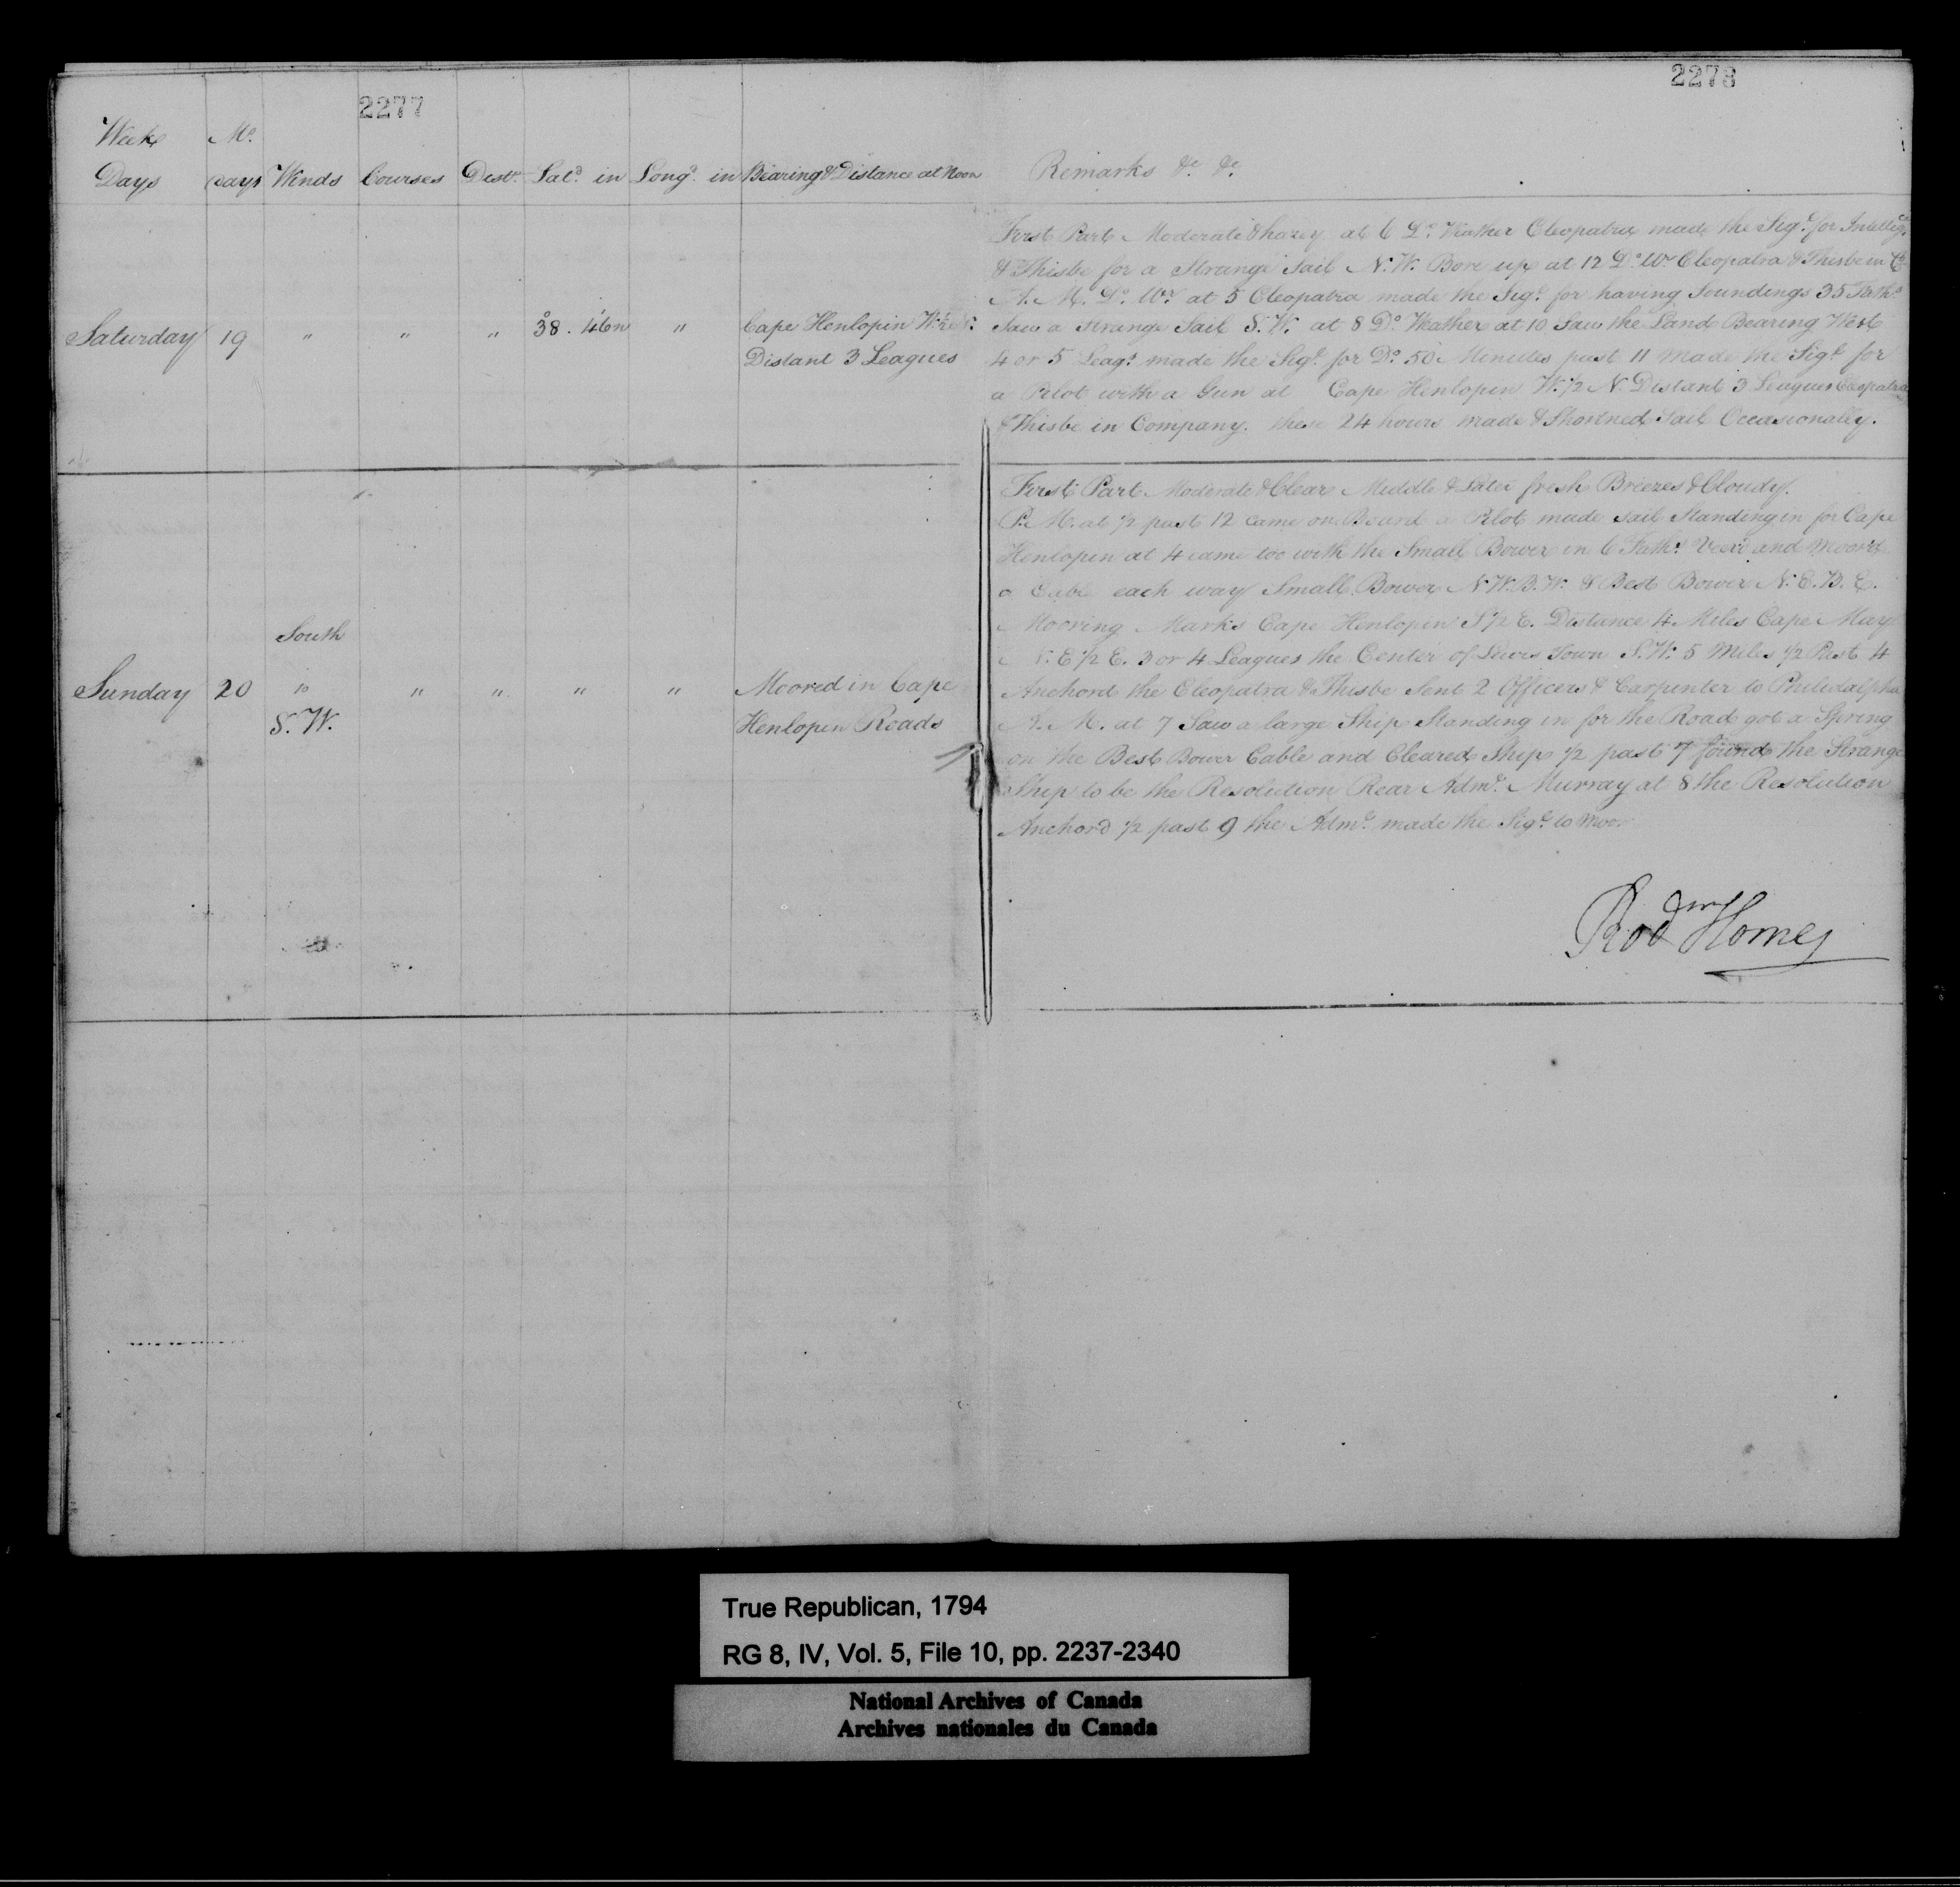 2277
2278
Week Mo.
Days days Winds Courses Dist. Latd. in Longd. in Bearing & Distance at Noon Remarks &c. &c.
Saturday 19 " " " 38. 46n " Cape Henlopen W. ½ N.
Distant 3 Leagues
First Part Moderate & hazey at 6 Do. Weather Cleopatra made the Sigl. for Intellig.
& Thisbe for a Strange Sail N.W. Bore up at 12 Do. Wr. Cleopatra & Thisbe in Co.
A.M. Do. Wr. at 5 Cleopatra made the Sigl. for having Soundings 35 Faths.
Saw a Strange Sail S.W. at 8 Do. Weather at 10 Saw the Land Bearing West
4 or 5 Leags. made the Sigl. for Do. 50 Minutes past 11 Made the Sigl. for
a Pilot with a Gun at Cape Henlopen W. ½ N. Distant 3 Leagues Cleopatra
& Thisbe in Company. these 24 hours made & Shortned Sail Occasionally.
Sunday 20 South to S.W. " " " " Moored in Cape
Henlopen Roads
First Part Moderate & Clear Middle & Later fresh Breezes & Cloudy.
P.M. at ½ past 12 came on Board a Pilot made sail Standing in for Cape
Henlopen at 4 came too with the Small Bower in 6 Faths. Veer'd and Moor'd
a Cable each way Small Bower N.W.B.W. & Best Bower N.E.B.E.
Mooring Marks Cape Henlopen S ½ E. Distance 4 Miles Cape May
N.E ½ E. 3 or 4 Leagues the Center of Lewis Town S.W. 5 Miles ½ Past 4
Anchord the Cleopatra & Thisbe Sent 2 Officers & Carpenter to Philidalphia
A.M. at 7 Saw a large Ship Standing in for the Road got a Spring
on the Best Bower Cable and Cleared Ship ½ past 7 found the Strange
Ship to be the Resolution Rear Adml. Murray at 8 the Resolution
Anchord ½ past 9 the Adml. made the Sigl. to Moor
Rodm Home
True Republican, 1794
RG 8, IV, Vol. 5, File 10, pp. 2237-2340
National Archives of Canada
Archives nationales du Canada